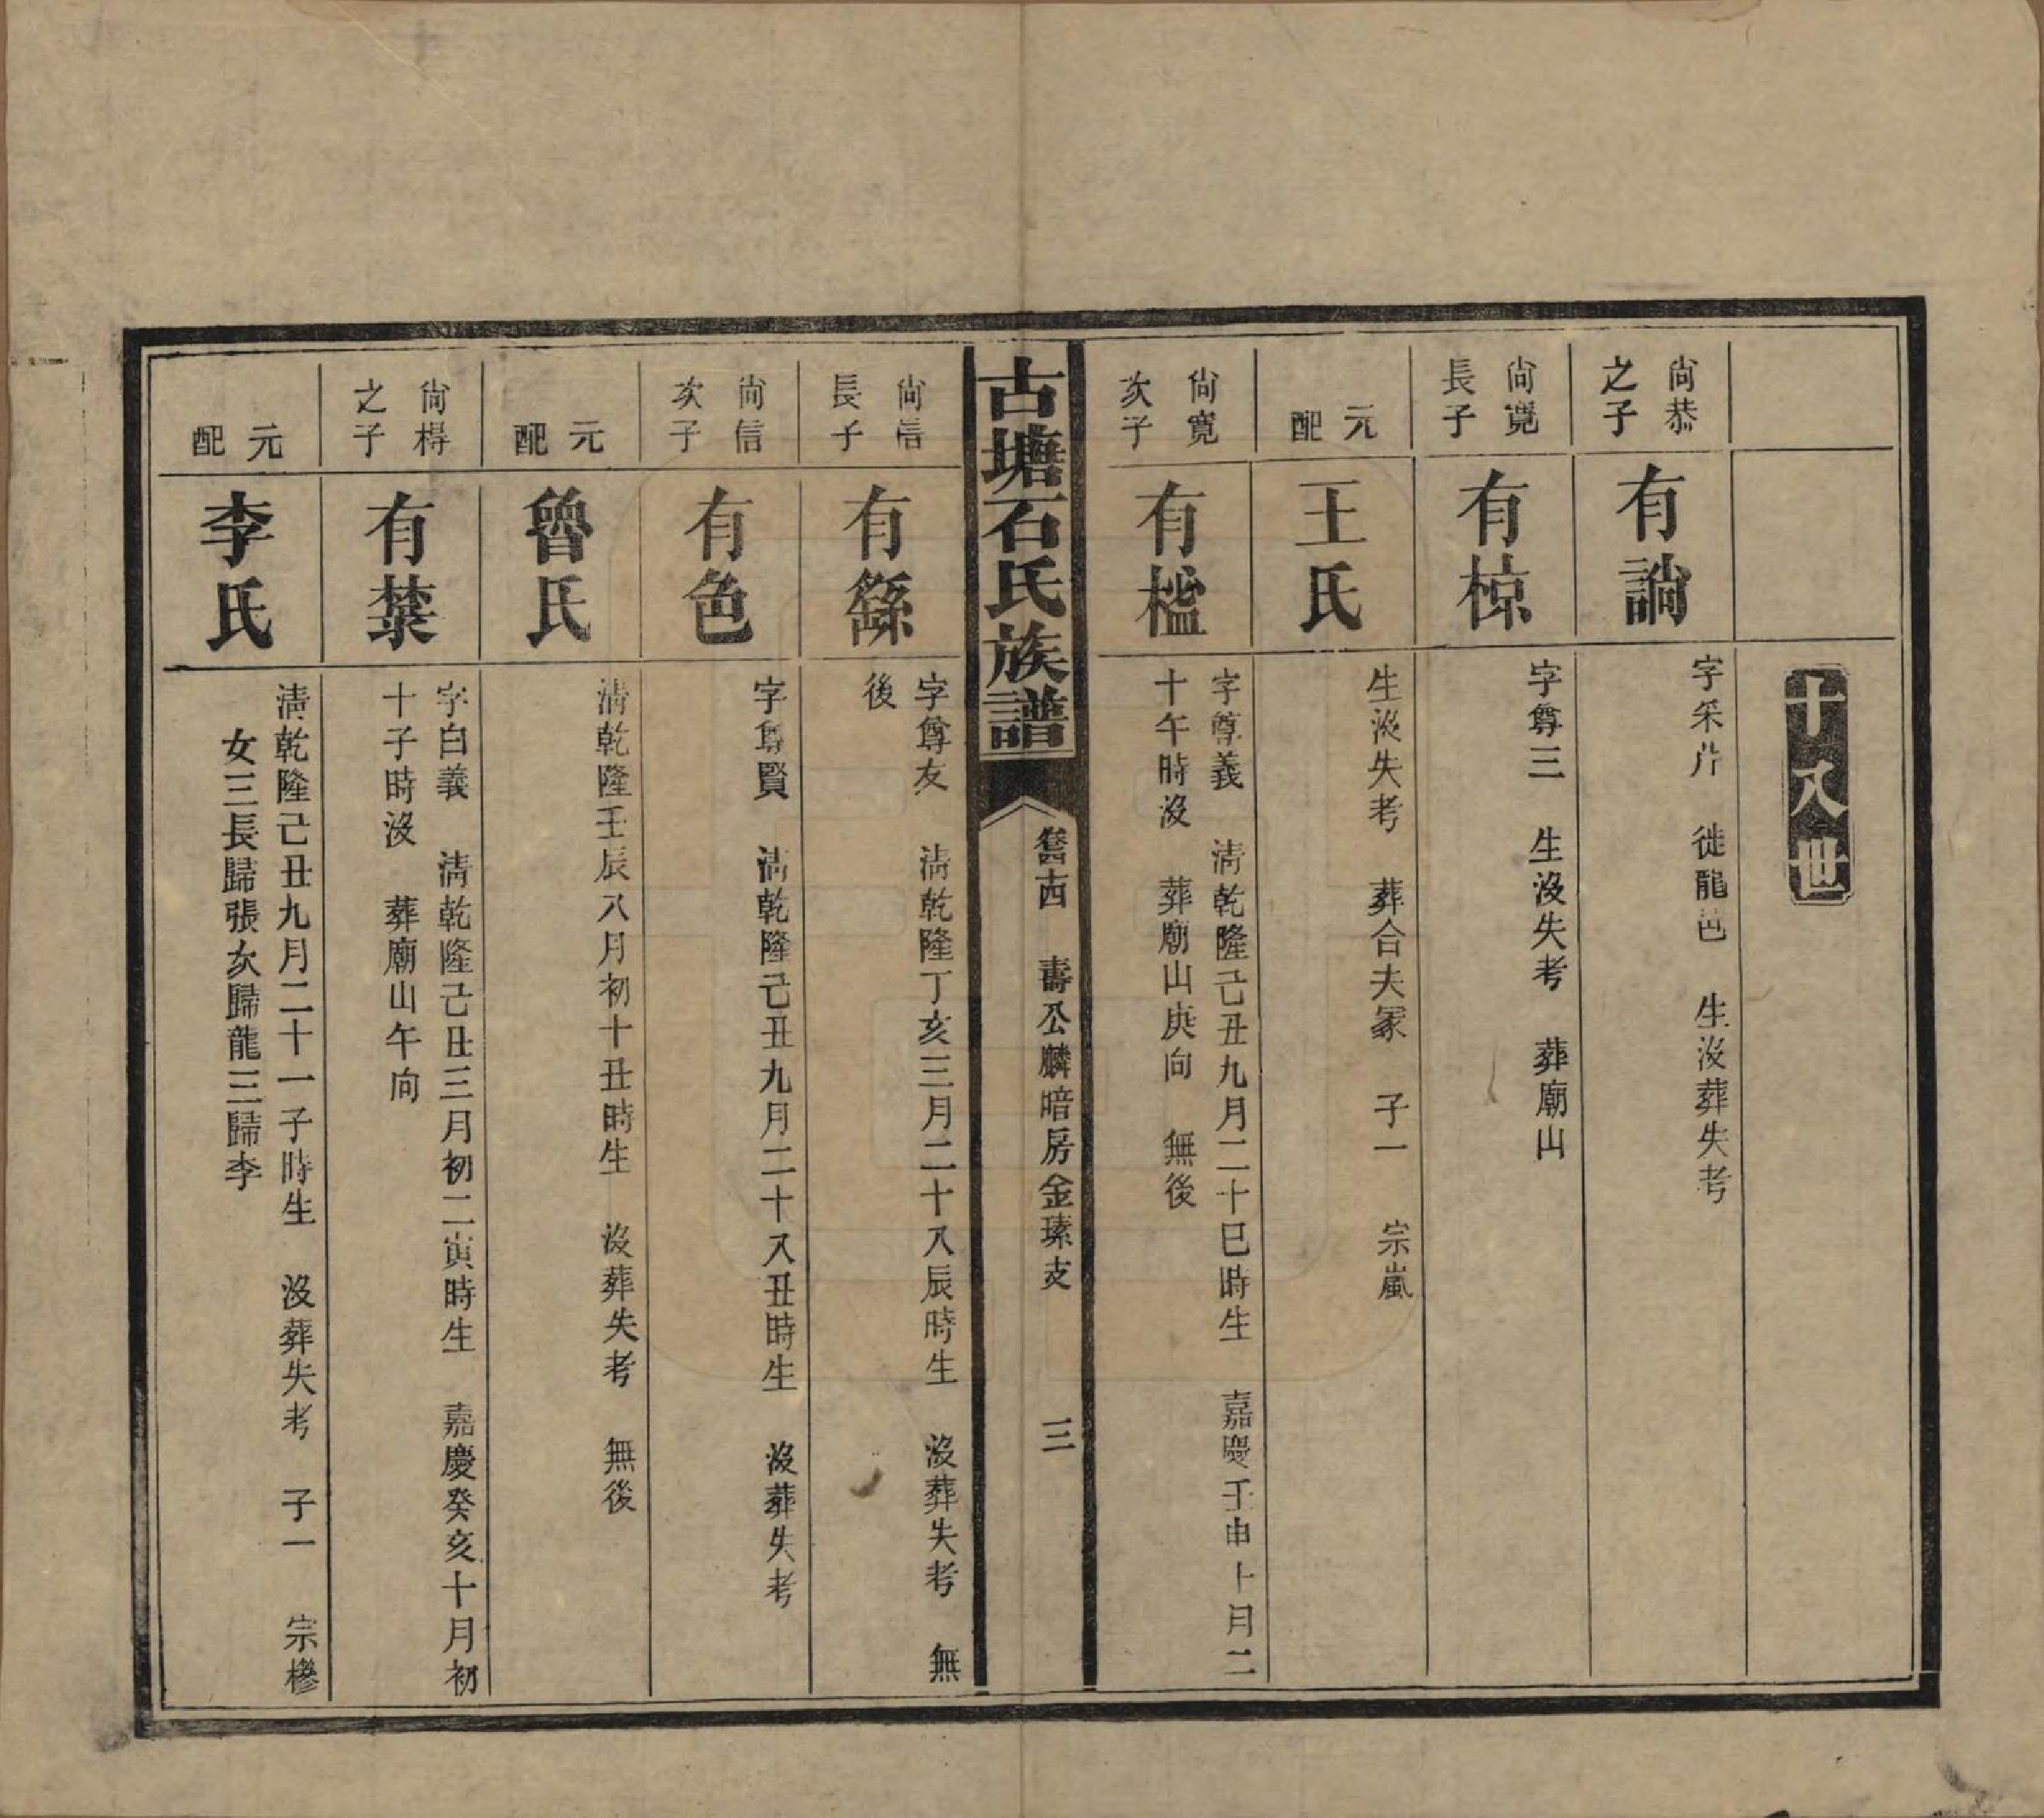 十八世
尙恭之子
有䛫
字采片　徙龍邑　生沒葬失考
尙寬長子
有椋
字尊三　生沒失考　葬廟山
元配
王氏
生沒失考　葬合夫冢　子一　宗嵐
尙寬次子
有𣚣
字尊義　淸乾隆己丑九月二十巳時生　嘉慶壬申十月二
十午時沒　葬廟山庚向　無後
古塘石氏族譜
卷四十四　壽公麟暗房金瑧支　三
尙信長子
有繇
字尊友　淸乾隆丁亥三月二十八辰時生　沒葬失考　無
後
尙信次子
有色
字尊賢　淸乾隆己丑九月二十八丑時生　沒葬失考
元配
魯氏
淸乾隆壬辰八月初十丑時生　沒葬失考　無後
尙樗之子
有棻
字白義　淸乾隆己丑三月初二寅時生　嘉慶癸亥十月初
十子時沒　葬廟山午向
元配
李氏
淸乾隆己丑九月二十一子時生　沒葬失考　子一　宗槮
女三長歸張次歸龍三歸李